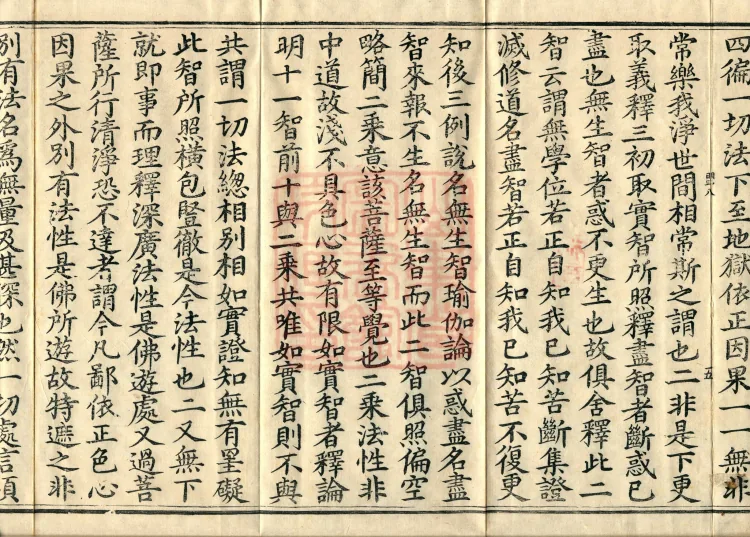 四徧一切法下至地獄依正因果一一無非
常樂我淨世間相常斯之謂也二非是下更
取義釋三初取實智所照釋盡智者斷惑已
盡也無生智者惑不更生也故俱舍釋此二
智云謂無學位若正自知我已知苦斷集證
滅修道名盡智若正自知我已知苦不復更
知後三例說名無生智瑜伽論以惑盡名盡
智來報不生名無生智而此二智俱照偏空
略簡二乘意該菩薩至等覺也二乘法性非
中道故淺不具色心故有限如實智者釋論
明十一智前十與二乘共唯如實智則不與
共謂一切法總相別相如實證知無有罣礙
此智所照橫包豎徹是今法性也二又無下
就即事而理釋深廣法性是佛遊處又過菩
薩所行清淨恐不達者謂今凡鄙依正色心
因果之外別有法性是佛所遊故特遮之非
別有法名為無量及甚深也然一切處言須